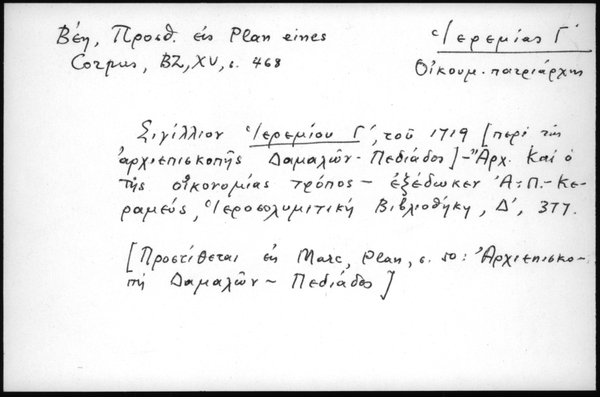 Βέη, Προσθ. εἰς Plan eines
Corpus, BZ, XV, σ. 468
Ἱερεμίας Γ΄
Οἰκουμ. πατριάρχης
Σιγίλλιον Ἱερεμίου Γ΄, τοῦ 1719 [περὶ τῆς
ἀρχιεπισκοπῆς Δαμαλῶν - Πεδιάδος] - "Ἀρχ. Καὶ ὁ
τῆς οἰκονομίας τρόπος - ἐξέδωκεν Ἀ. Π. - Κε-
ραμεύς, Ἱεροσολυμιτικὴ Βιβλιοθήκη, Δ΄, 377.
[Προστίθεται εἰς Marc, Plan, σ. 50: Ἀρχιεπισκο-
πὴ Δαμαλῶν - Πεδιάδος]